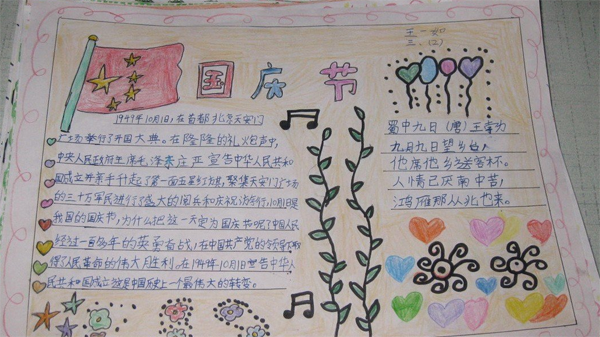 王一如
三.(2)
国庆节
1949年10月1日,在首都北京天安门
广场举行了开国大典。在隆隆的礼炮声中,
中央人民政府主席毛泽东庄严宣告中华人民共和
国成立并亲手升起了第一面五星红旗,聚集天安门广场
的三十万军民进行了盛大的阅兵和庆祝游行,10月1日是
我国的国庆节,为什么把这一天定为国庆节呢?中国人民
经过一百多年的英勇奋战,在中国共产党的领导下,取
得了人民革命的伟大胜利。在1949年10月1日宣告中华人
民共和国成立,这是中国历史上一个最伟大的转变。
蜀中九日(唐)王勃为
九月九日望乡台,
他席他乡送客杯。
人情已厌南中苦,
鸿雁那从北地来。